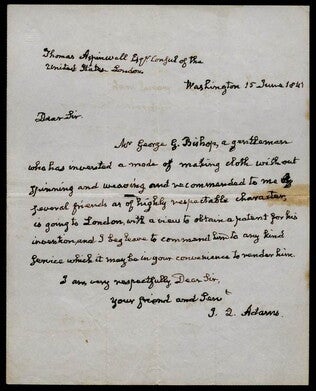 Thomas Aspinwall Esqr. Consul of the
United States London
Washington 15 June 1841
Dear Sir
Mr George G. Bishop, a gentleman
who has invented a mode of making cloth without
spinning and weaving and recommended to me by
several friends as of highly respectable character,
is going to London, with a view to obtain a patent for his
invention, and I beg leave to commend him to any kind
service which it may be in your convenience to render him.
I am very respectfully Dear Sir,
your friend and Servt
J. Q. Adams.